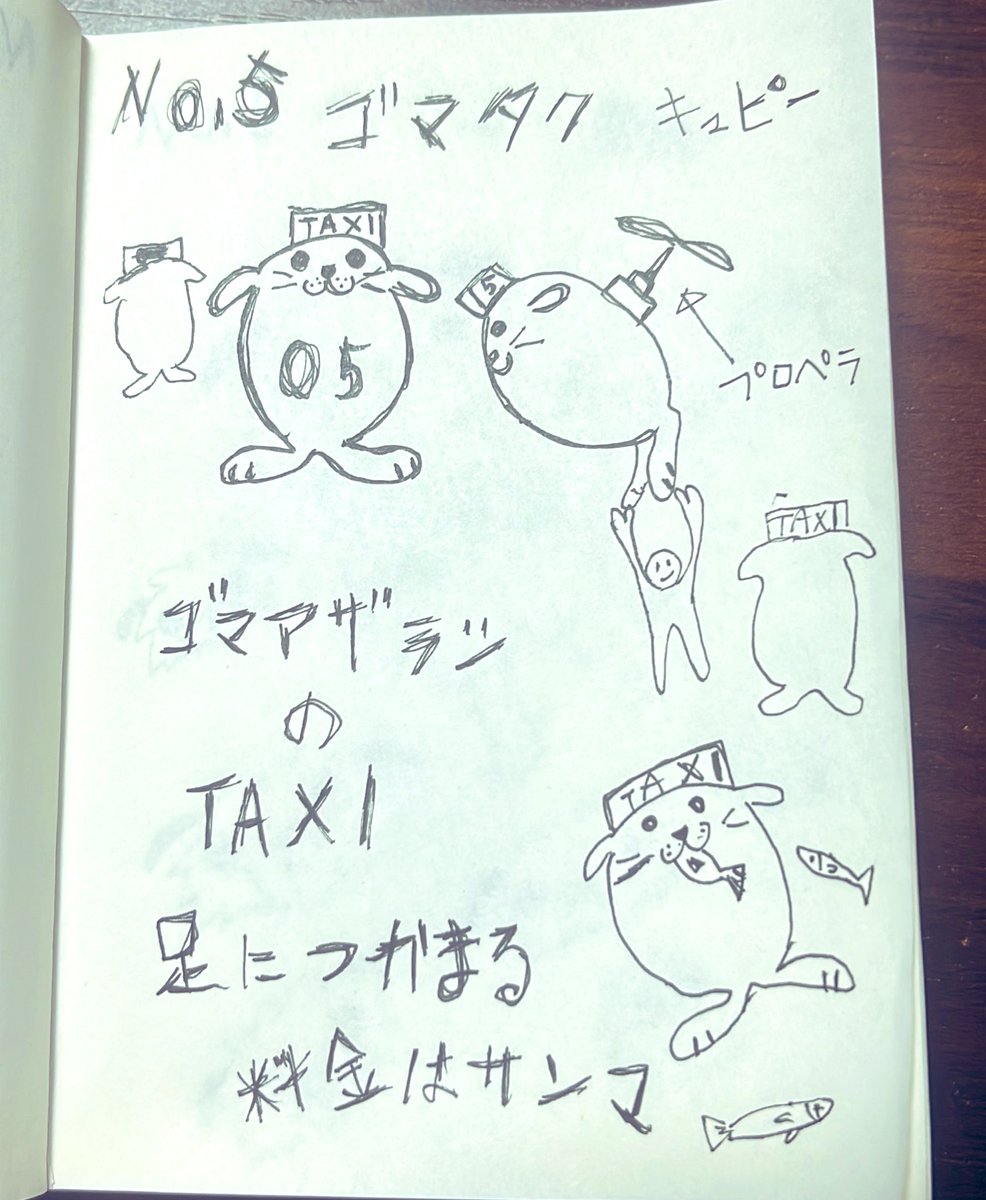 No.5 ゴマタク キュピー
TAXI
05
15
プロペラ
TAXI
ゴマアザラシ
の
TAXI
TAXI
足につかまる
料金はサンマ